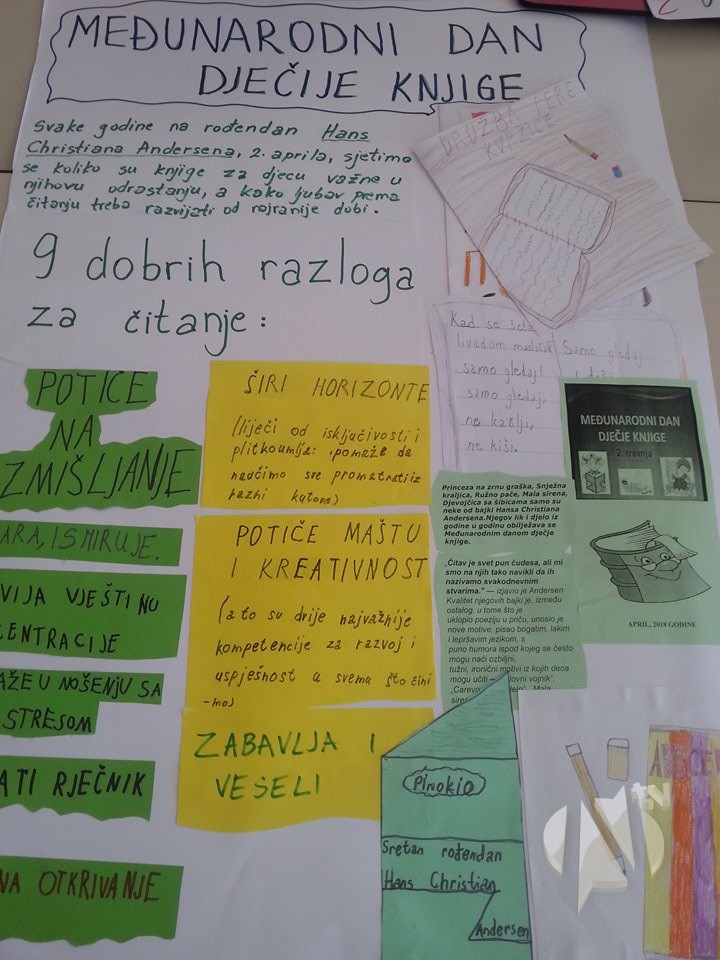 MEĐUNARODNI DAN
DJEČIJE KNJIGE
Svake godine na rođendan Hans
Christiana Andersena, 2. aprila, sjetimo
se koliko su knjige za djecu važne u
njihovu odrastanju, a kako ljubav prema
čitanju treba razvijati od najranije dobi.
9 dobrih razloga
za čitanje:
POTIČE
NA
ZMIŠLJANJE
ARA, ISMIRUJE.
VIJA VJEŠTINU
CENTRACIJE
AŽE U NOŠENJU SA
STRESOM
ATI RJEČNIK
NA OTKRIVANJE
ŠIRI HORIZONTE
(liječi od isključivosti i
plitkoumlja: pomaže da
naučimo sve promatrati iz
kutova)
POTIČE MAŠTU
I KREATIVNOST
(a to su dvije najvažnije
kompetencije za razvoj i
uspješnost u svemu što čini
-mo)
ZABAVLJA I
VESELI
DRUŽBA PERE
KVRŽICE
Kad se šeta
livadom
samo gledaj!
samo gledaj,
ne kašlji,
ne kiši.
Samo gledaj
MEĐUNARODNI DAN
DJEČJE KNJIGE
2. travnja
APRIL, 2018 GODINE
Princeza na zrnu graška, Snježna
kraljica, Ružno pače, Mala sirena,
Djevojčica sa šibicama samo su
neke od bajki Hansa Christiana
Andersena.Njegov lik i djelo iz
godine u godinu obilježava se
Međunarodnim danom dječje
knjige.
„Čitav je svet pun čudesa, ali mi
smo na njih tako navikli da ih
nazivamo svakodnevnim
stvarima." — izjavio je Andersen.
Kvalitet njegovih bajki je, između
ostalog, u tome što je
uklopio poeziju u priču, unosio je
nove motive, pisao bogatim, lakim
i lepršavim jezikom, s
puno humora ispod kojeg se često
mogu naći ozbiljni,
tužni, ironični motivi iz kojih deca
mogu učiti – lovni vojnik",
„Carevo Mala
sire
Pinokio
Sretan rođendan
Hans Christian
Andersen
tv